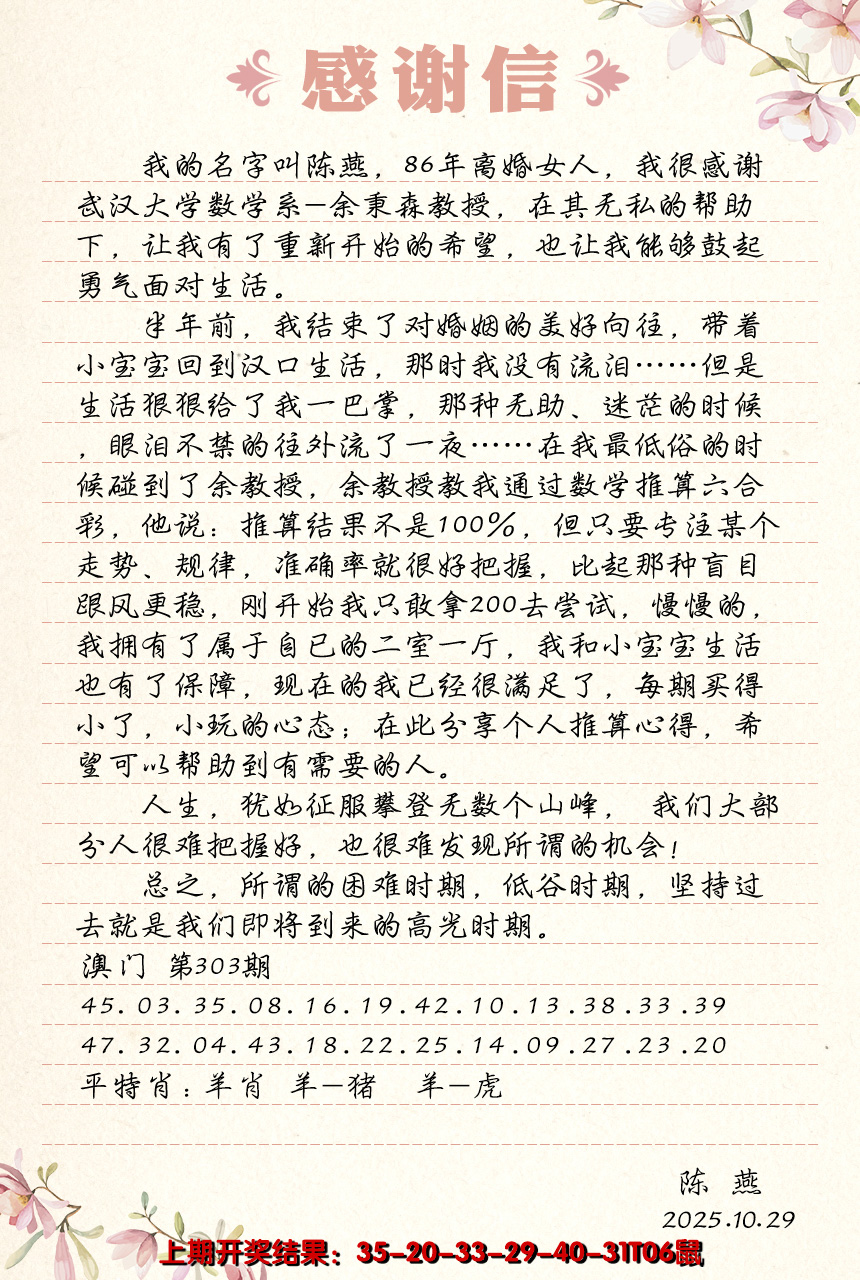 感谢信
我的名字叫陈燕，86年离婚女人，我很感谢
武汉大学数学系—余秉森教授，在其无私的帮助
下，让我有了重新开始的希望，也让我能够鼓起
勇气面对生活。
半年前，我结束了对婚姻的美好向往，带着
小宝宝回到汉口生活，那时我没有流泪……但是
生活狠狠给了我一巴掌，那种无助、迷茫的时候
，眼泪不禁的往外流了一夜……在我最低俗的时
候碰到了余教授，余教授教我通过数学推算六合
彩，他说：推算结果不是100%，但只要专注某个
走势、规律，准确率就很好把握，比起那种盲目
跟风更稳，刚开始我只敢拿200去尝试，慢慢的，
我拥有了属于自己的二室一厅，我和小宝宝生活
也有了保障，现在的我已经很满足了，每期买得
小了，小玩的心态；在此分享个人推算心得，希
望可以帮助到有需要的人。
人生，犹如征服攀登无数个山峰， 我们大部
分人很难把握好，也很难发现所谓的机会！
总之，所谓的困难时期，低谷时期，坚持过
去就是我们即将到来的高光时期。
澳门 第303期
45.03.35.08.16.19.42.10.13.38.33.39
47.32.04.43.18.22.25.14.09.27.23.20
平特肖：羊肖 羊—猪 羊—虎
陈 燕
2025.10.29
上期开奖结果：35-20-33-29-40-31T06鼠